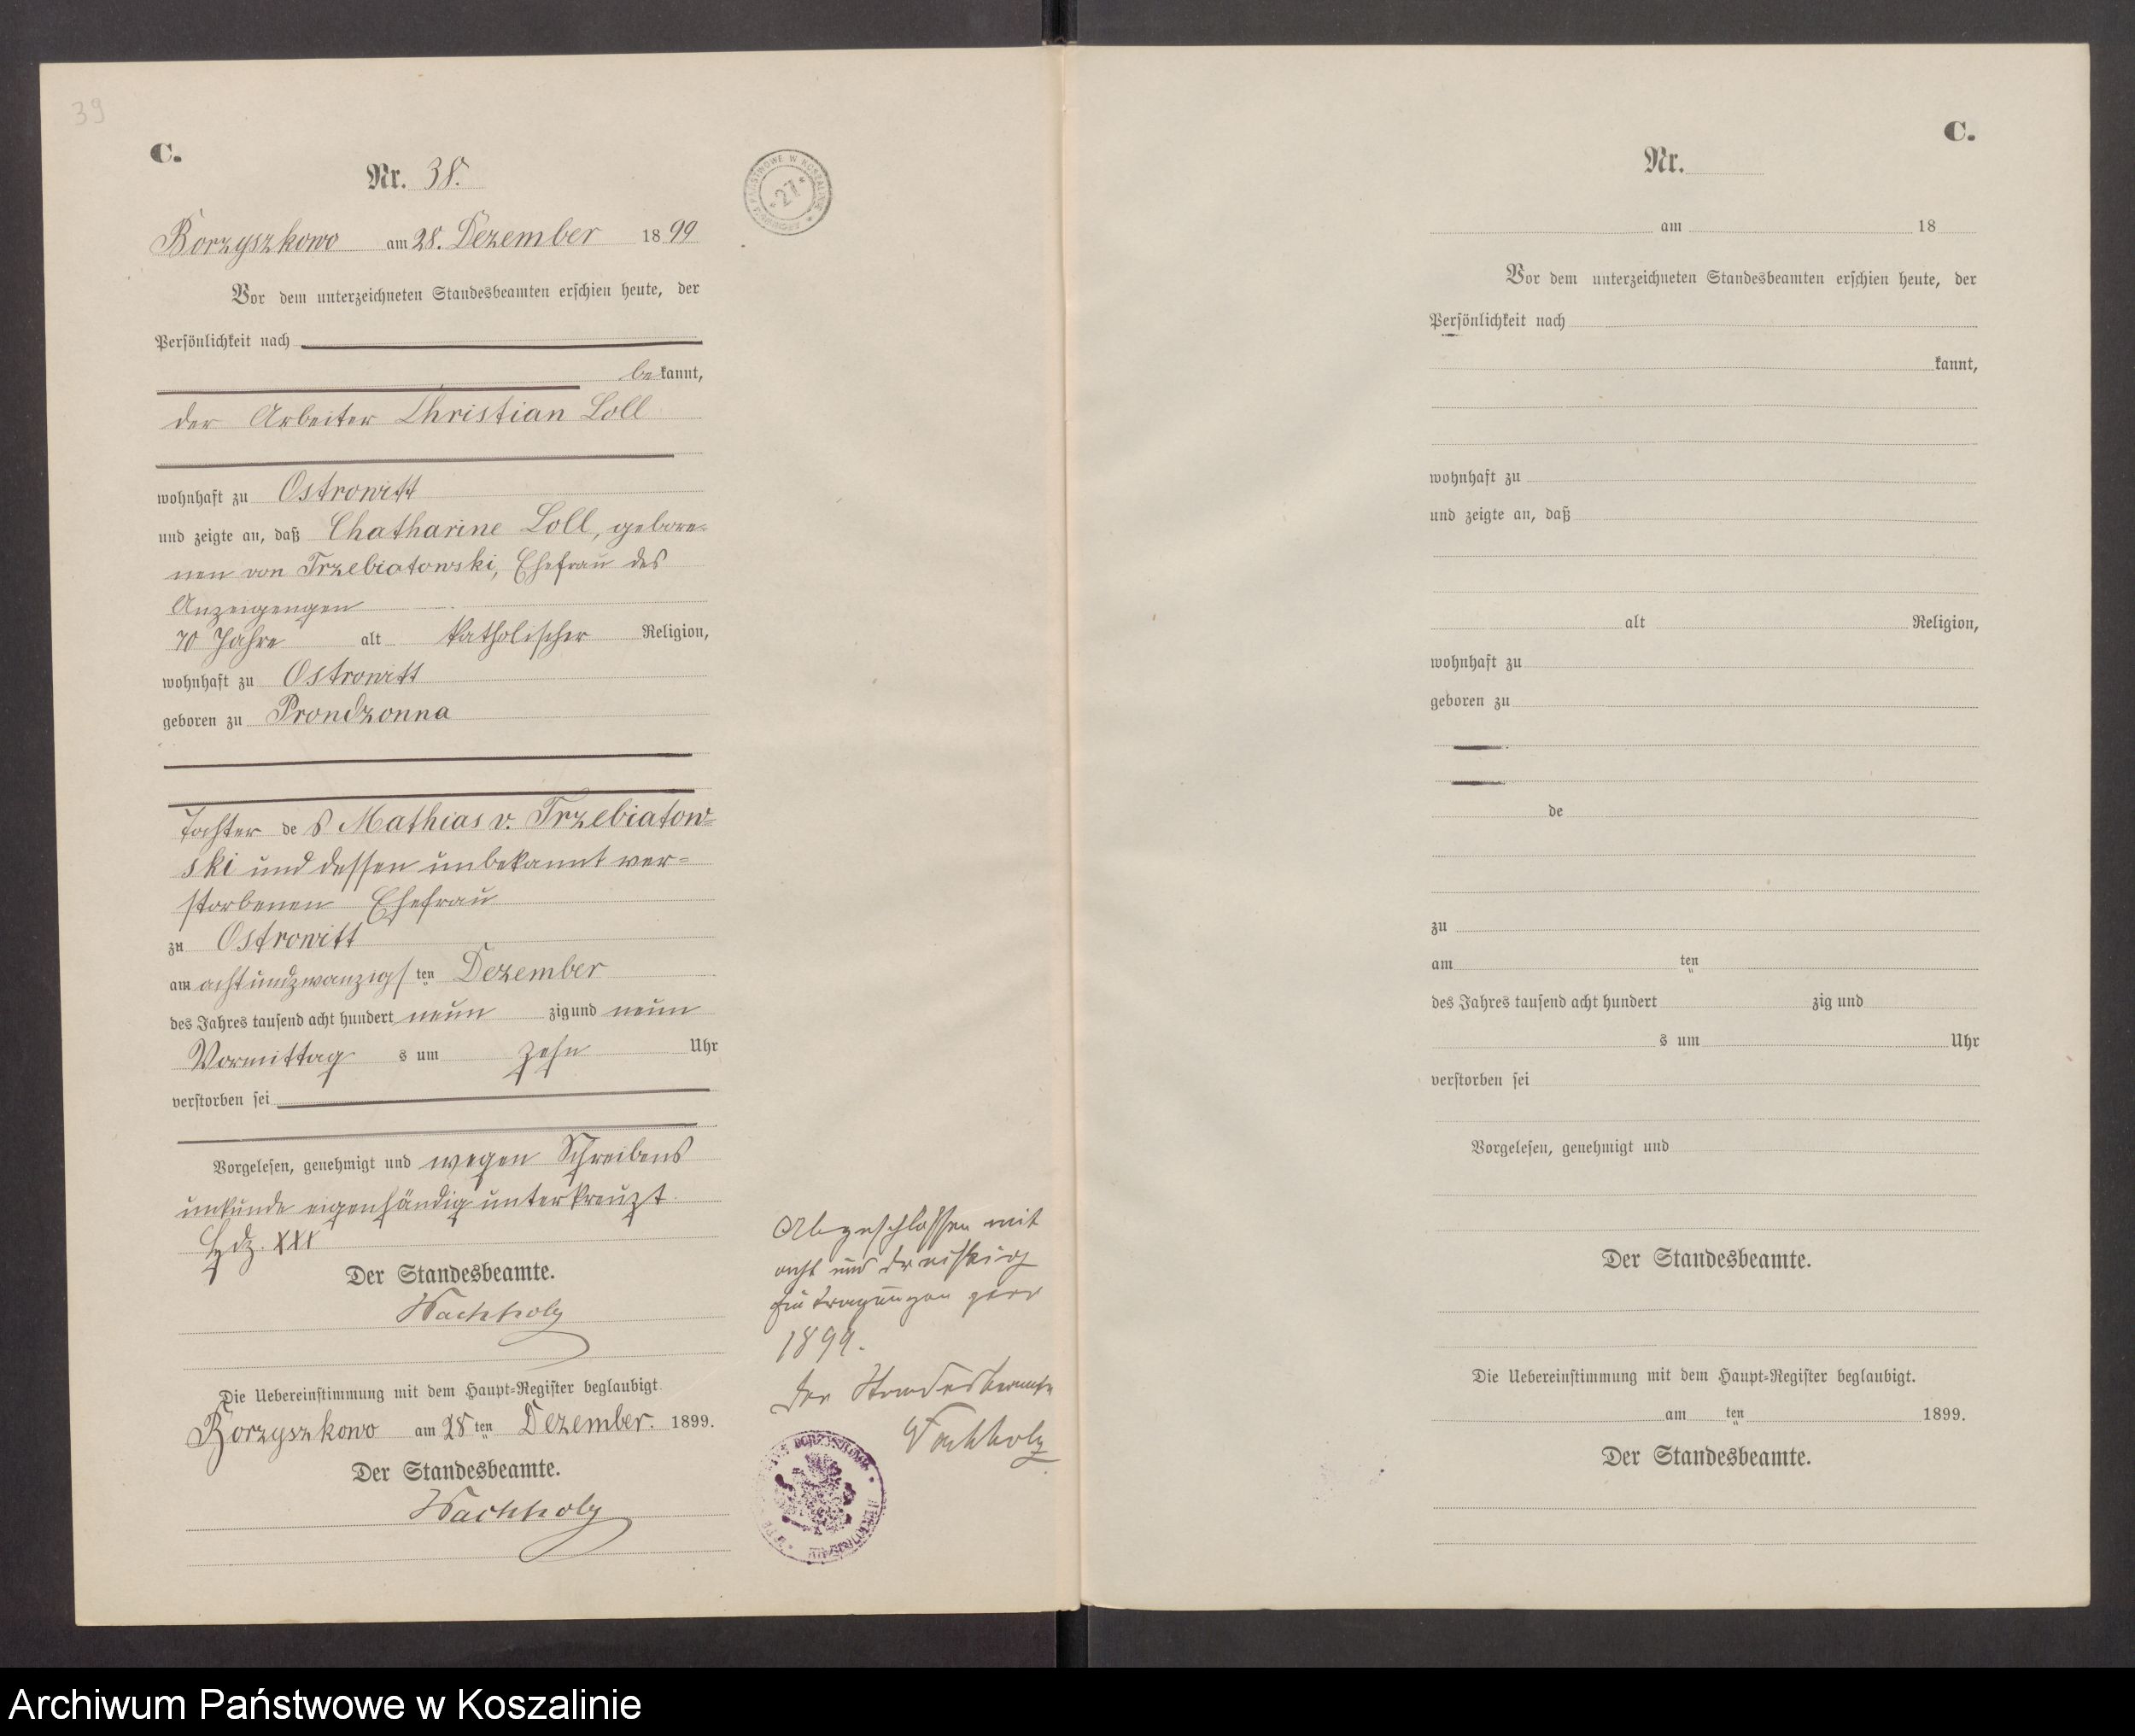 39
C.
Nr. 38.
Borzyszkowo am 28. Dezember 1899
Vor dem unterzeichneten Standesbeamten erschien heute, der
Persönlichkeit nach
bekannt,
der Arbeiter Christian Loll
wohnhaft zu Ostrowitt
und zeigte an, daß Chatharine Loll, gebore-
nen von Trzebiatowski, Ehefrau des
Anzeigengen
70 Jahre alt katholischer Religion,
wohnhaft zu Ostrowitt
geboren zu Prondzonna
Tochter des Mathias v. Trzebiatow-
ski und dessen unbekannt ver-
storbenen Ehefrau
zu Ostrowitt
am achtundzwanzigsten Dezember
des Jahres tausend acht hundert neunzig und neun
Vormittags um zehn Uhr
verstorben sei
Vorgelesen, genehmigt und wegen Schreibens
unkunde eigenhändig unterkreuzt.
Hdz. XXX
Der Standesbeamte.
Wachholz
Die Uebereinstimmung mit dem Haupt-Register beglaubigt.
Borzyszkowo am 28ten Dezember. 1899.
Der Standesbeamte.
Wachholz
PAŃSTWOWE W KOSZALINIE
27
Abgeschlossen mit
acht und dreißig
Eintragungen pro
1899.
Der Standesbeamte
Wachholz
C.
Nr.
am 18
Vor dem unterzeichneten Standesbeamten erschien heute, der
Persönlichkeit nach
kannt,
wohnhaft zu
und zeigte an, daß
alt Religion,
wohnhaft zu
geboren zu
de
zu
am ten
des Jahres tausend acht hundert zig und
s um Uhr
verstorben sei
Vorgelesen, genehmigt und
Der Standesbeamte.
Die Uebereinstimmung mit dem Haupt-Register beglaubigt.
am ten 1899.
Der Standesbeamte.
Archiwum Państwowe w Koszalinie